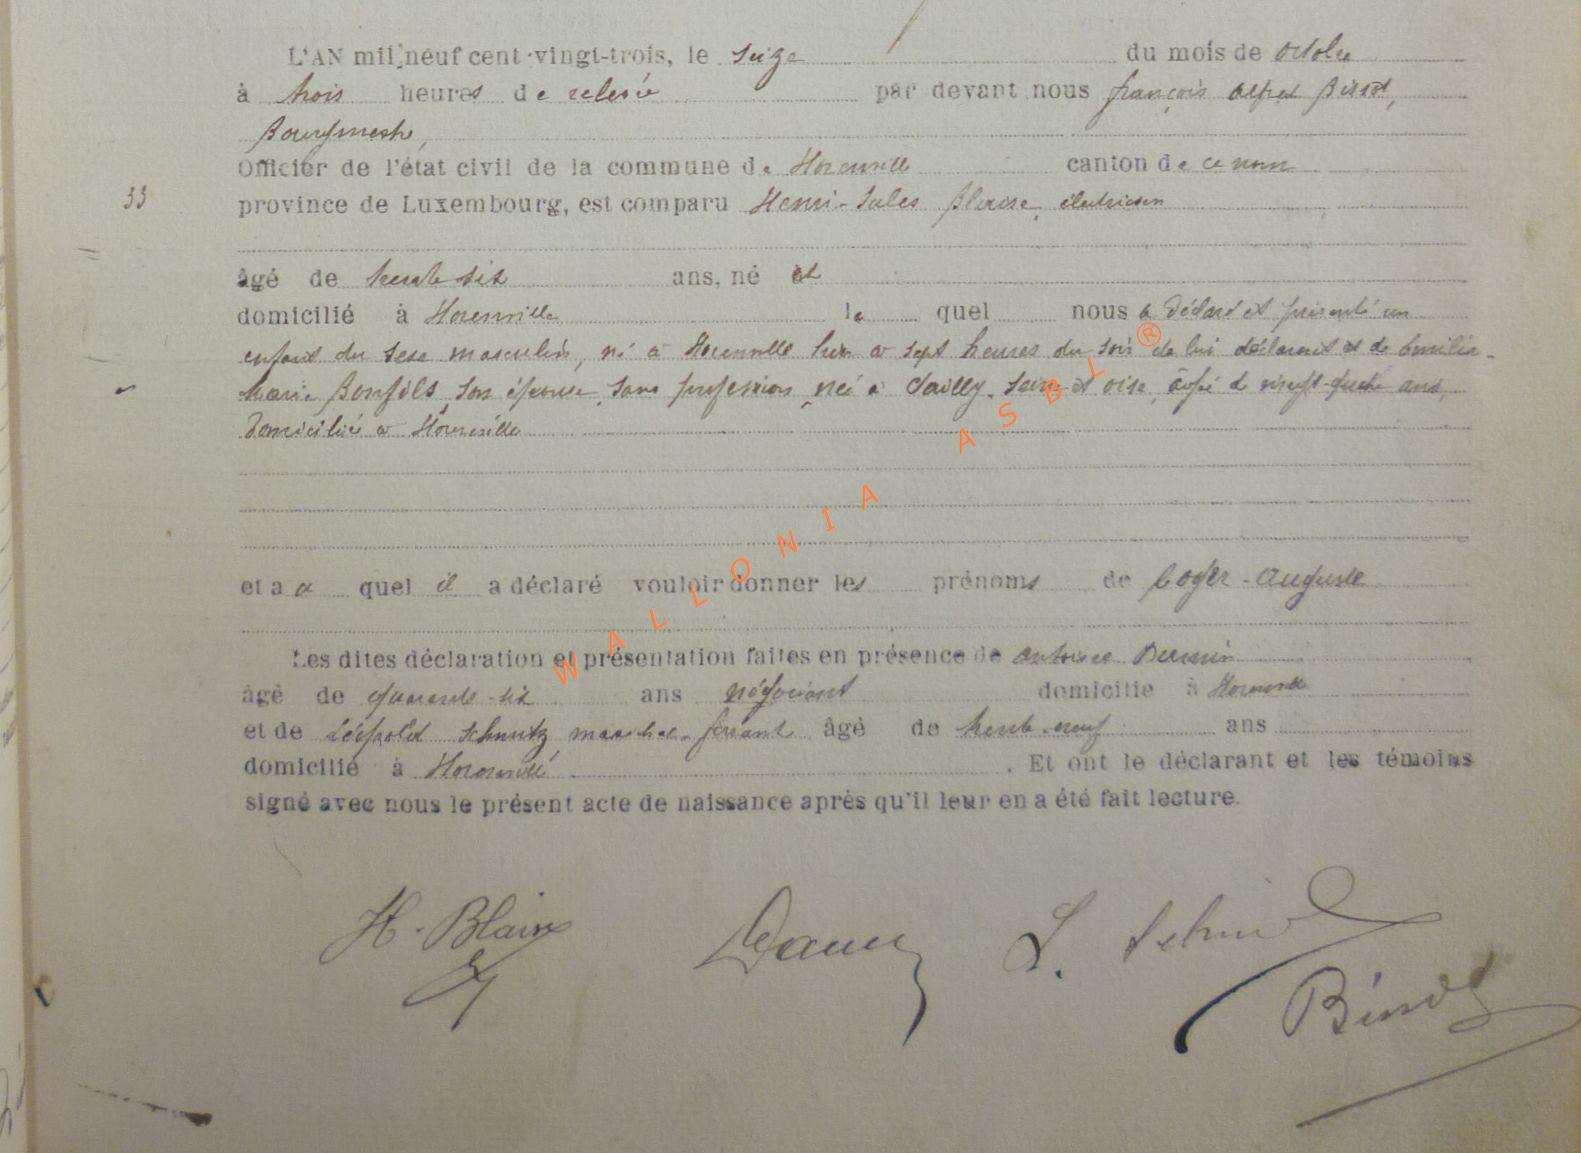 L'AN mil neuf cent vingt-trois, le seize du mois de octobre
à trois heures de relevée par devant nous françois alfred Bissot,
Bourgmestre,
Officier de l'état civil de la commune de Houmville canton de ce nom
33
province de Luxembourg, est comparu Henri-Jules Blaise, électricien
âgé de trente six ans, né et
domicilié à le quel nous a déclaré et présenté un
enfant du sexe masculin, né à hier à sept heures du soir de lui déclarant et de Emilia-
Marie Bonfils, son épouse, sans profession, née à seine et oise, âgée de vingt-quatre ans,
domiciliée à
et a a quel il a déclaré vouloir donner les prénoms de Roger-Auguste
Les dites déclaration et présentation faites en présence de antoine
âgé de quarante-six ans négociant domicilié à
et de Léopold Schmitz, maréchal-ferrant âgé de trente-neuf ans
domicilié à . Et ont le déclarant et les témoins
signé avec nous le présent acte de naissance après qu'il leur en a été fait lecture.
H. Blaise
L.
WALLONIA ASBL ®